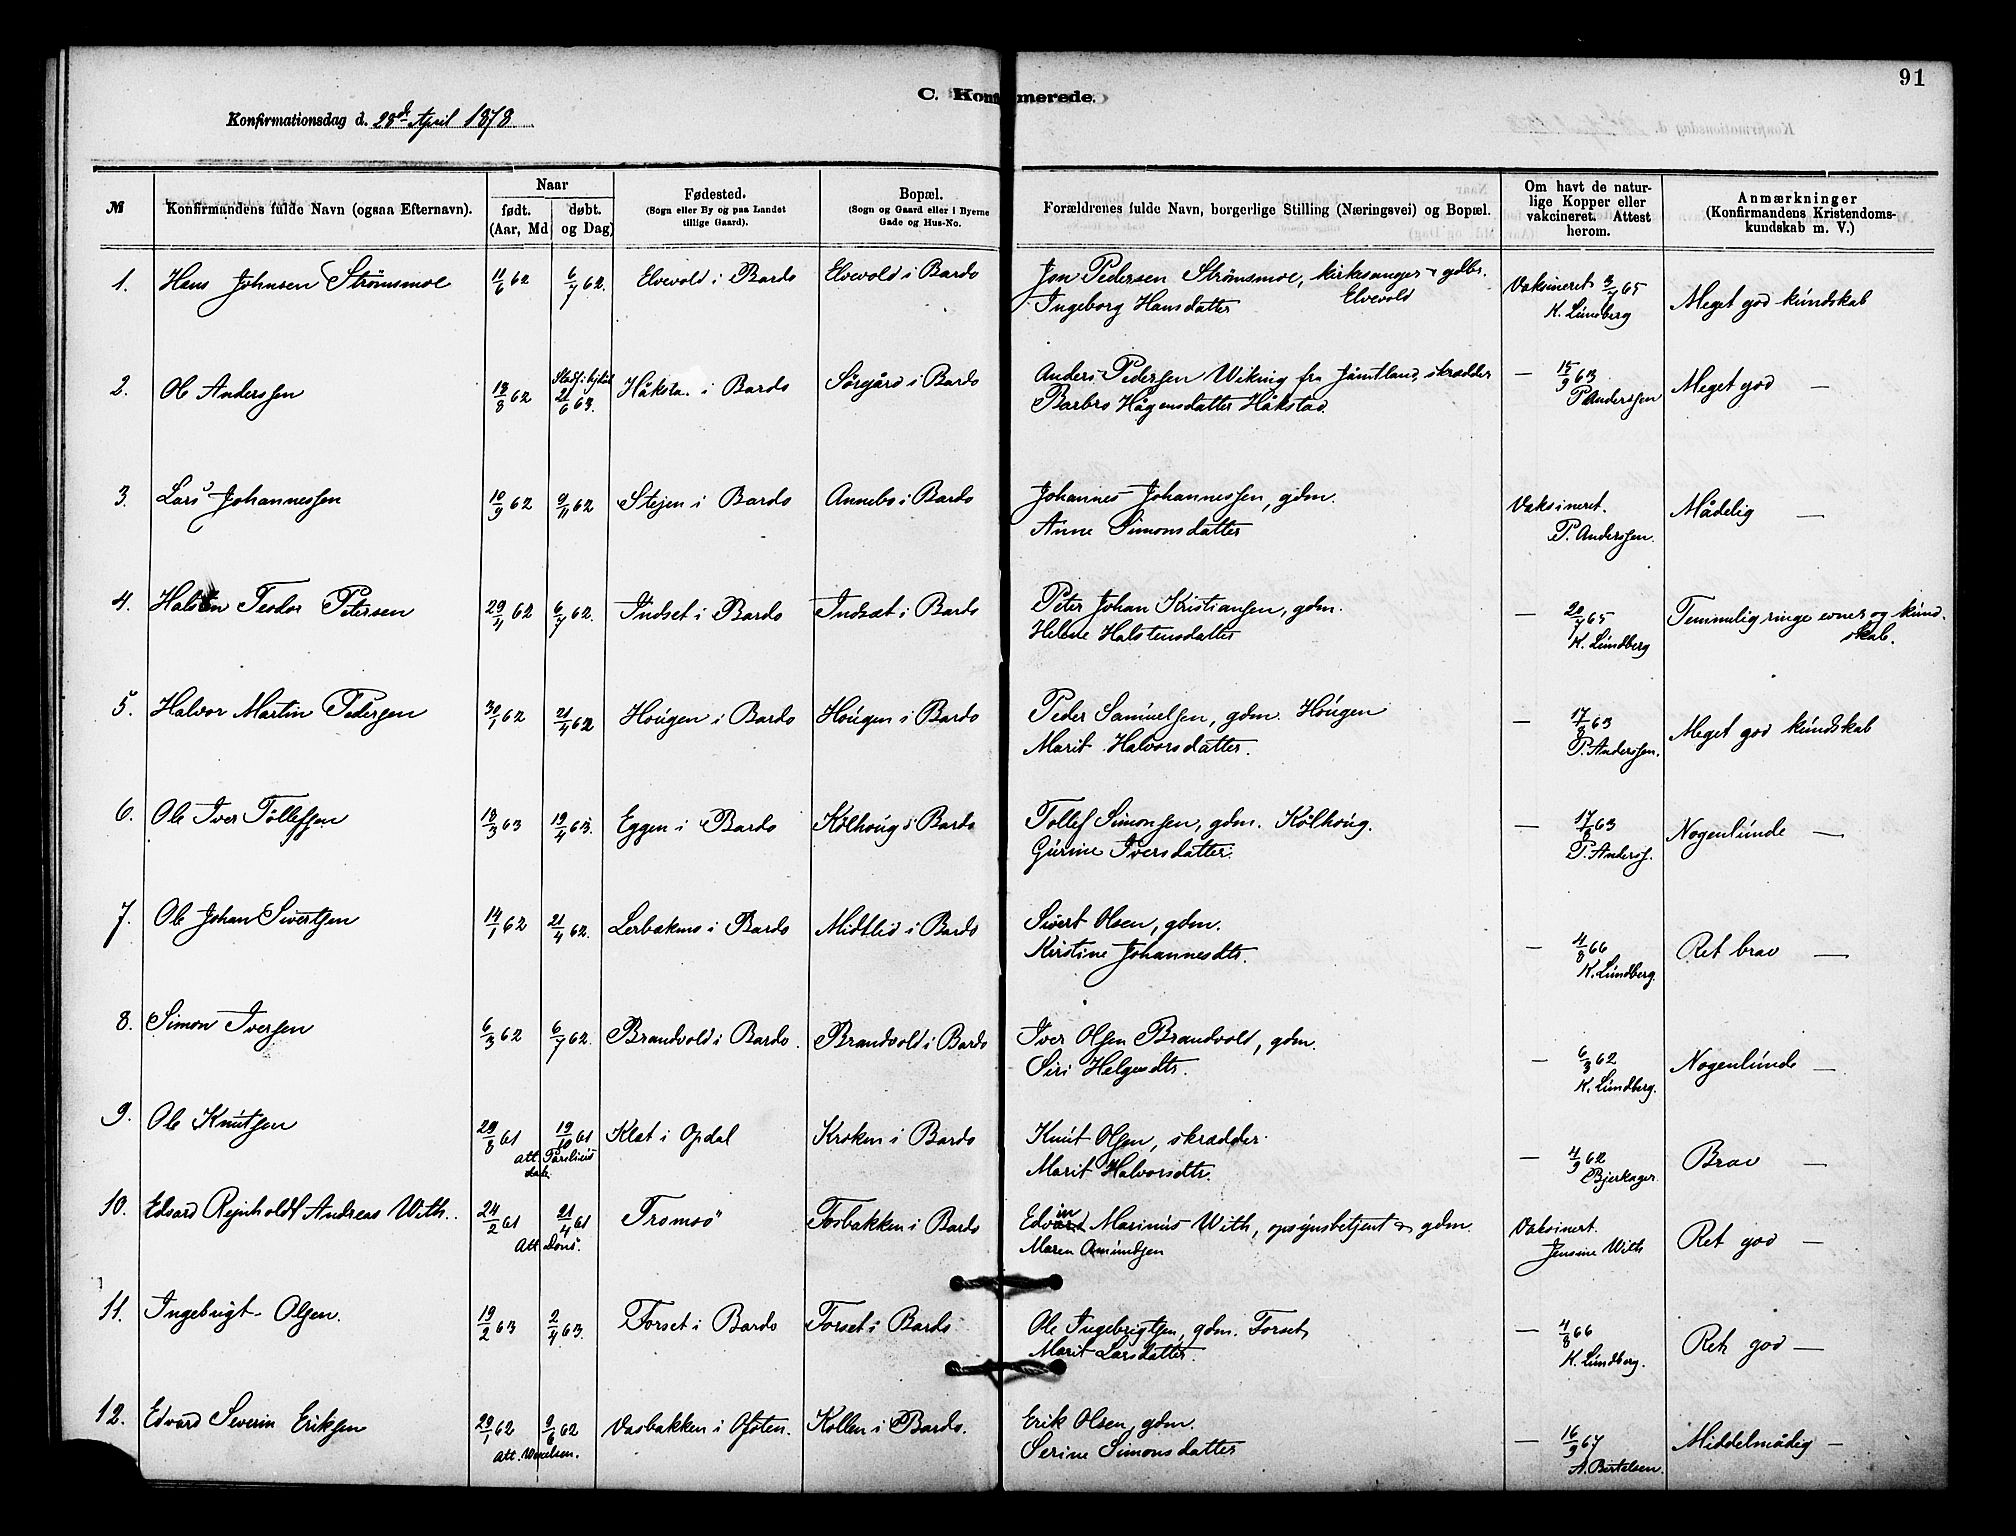 91
C. Konfirmerede.
Konfirmationsdag d. 28de April 1878
№ | Konfirmandens fulde Navn (ogsaa Efternavn). | Naar født. (Aar, Md | døbt. og Dag) | Fødested. (Sogn eller By og paa Landet tillige Gaard). | Bopæl. (Sogn og Gaard eller i Byerne Gade og Hus-No. | Forældrenes fulde Navn, borgerlige Stilling (Næringsvei) og Bopæl. | Om havt de naturlige Kopper eller vakcineret. Attest herom. | Anmærkninger (Konfirmandens Kristendomskundskab m. V.)
1. Hans Johnsen Strømsmoe 11/6 62 6/7 62. Elvevold i Bardo Elvevold i Bardo Jon Pedersen Strømsmoe, kirkesanger & gdbr. Vaksineret 3/7 65 Meget god kundskab
Ingeborg Hansdatter Elvevold K. Lundberg
2. Ole Anderssen 18/8 62 21/6 63. Håksta. i Bardo Sørgård i Bardo Anders Pedersen Wiking fra Jämtland, skrædder — 15/9 63 Meget god —
Barbro Hågensdatter Håkstad. P Anderssen
3. Lars Johannessen 10/9 62 9/11 62 Stejen i Bardo Annebo i Bardo Johannes Johannessen, gdm. Vaksineret. Mådelig —
Anne Simonsdatter P. Anderssen.
4. Halsten Teodor Petersen 29/4 62 6/7 62. Indset i Bardo Indsæt i Bardo Peter Johan Kristiansen, gdm. — 20/7 65 Temmelig ringe evner og kund-
Helene Halstensdatter K. Lundberg skab.
5. Halvor Martin Pedersen 30/1 62 21/4 62 Hougen i Bardo Hougen i Bardo Peder Samuelsen, gdm. Hougen — 17/8 63 Meget god kundskab
Marit Halvorsdatter. P. Anderssen.
6. Ole Iver Tollefsen 18/3 63 19/4 63. Eggen i Bardo Kolhoug i Bardo Tollef Simonsen, gdm. Kolhoug. — 17/8 63 Nogenlunde —
Gurine Iversdatter. P. Anderss.
7. Ole Johan Sivertsen 14/1 62 21/4 62. Lerbakmo i Bardo Midtlid i Bardo Sivert Olsen, gdm. — 4/8 66 Ret brav —
Kirstine Johannesdtr. K. Lundberg.
8. Simon Iversen 6/3 62 6/7 62. Brandvold i Bardo. Brandvold i Bardo Iver Olsen Brandvold, gdm. — 6/3 62 Nogenlunde —
Siri Helgesdtr. K. Lundberg.
9. Ole Knutsen 29/8 61 19/10 61 Klæt i Opdal Kroken i Bardo Knut Olsen, skrædder. — 4/9 62 Brav —
Att. Marit Halvorsdtr. Bjerkager.
10. Edvard Rejnholdt Andreas With. 24/2 61 21/4 61 Tromsø Fosbakken i Bardo Edvin Marinus With, opsynsbetjent & gdm. Vaksinert. Ret god —
Att. Dons. Maren Amundsen Jensine With
11. Ingebrigt Olsen. 19/2 63 2/4 63. Forset i Bardo Forset i Bardo Ole Ingebrigtsen, gdm. Forset — 4/8 66 Ret god —
Marit Larsdatter. K. Lundberg.
12. Edvard Severin Eriksen 29/1 62 9/6 62 Vasbakken i Ofoten. Kollen i Bardo. Erik Olsen, gdm. — 16/9 67 Middelmådig —
Att. Wexelsen. Serine Simonsdatter A. Bertelsen.